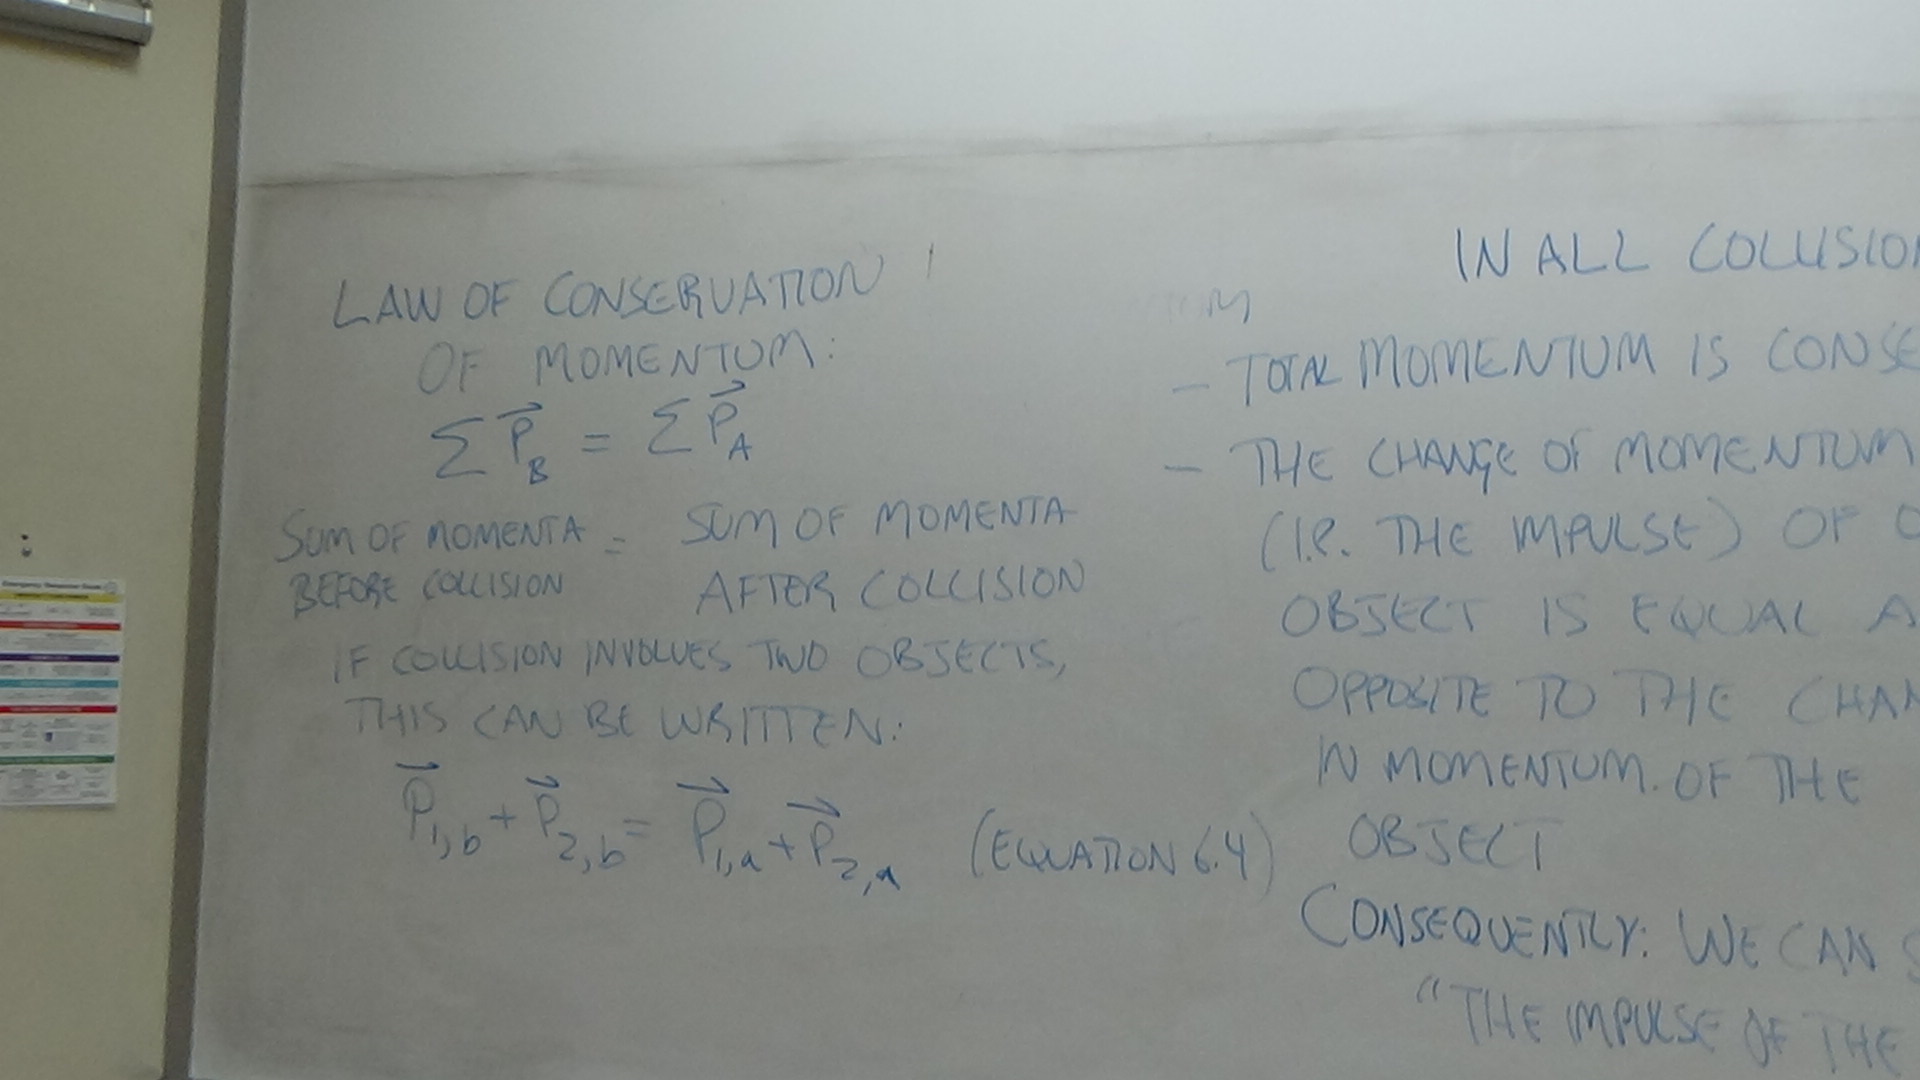 LAW OF CONSERVATION
OF MOMENTUM:
Σ P⃗_B = Σ P⃗_A
SUM OF MOMENTA = SUM OF MOMENTA
BEFORE COLLISION AFTER COLLISION
IF COLLISION INVOLVES TWO OBJECTS,
THIS CAN BE WRITTEN:
P⃗_1,b + P⃗_2,b = P⃗_1,a + P⃗_2,a (EQUATION 6.4)
IN ALL COLLISION
M
- TOTAL MOMENTUM IS CONSE
- THE CHANGE OF MOMENTUM
(I.e. THE IMPULSE) OF
OBJECT IS EQUAL A
OPPOSITE TO THE CHAN
IN MOMENTUM. OF THE
OBJECT
CONSEQUENTLY: WE CAN S
"THE IMPULSE OF THE